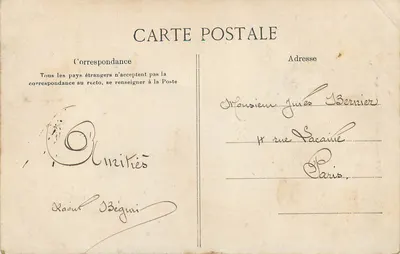 CARTE POSTALE
Correspondance
Tous les pays étrangers n'acceptent pas la
correspondance au recto, se renseigner à la Poste
Amitiés
Raoul Béguin
Adresse
Monsieur Jules Bernier
11 rue Lacaille
Paris.